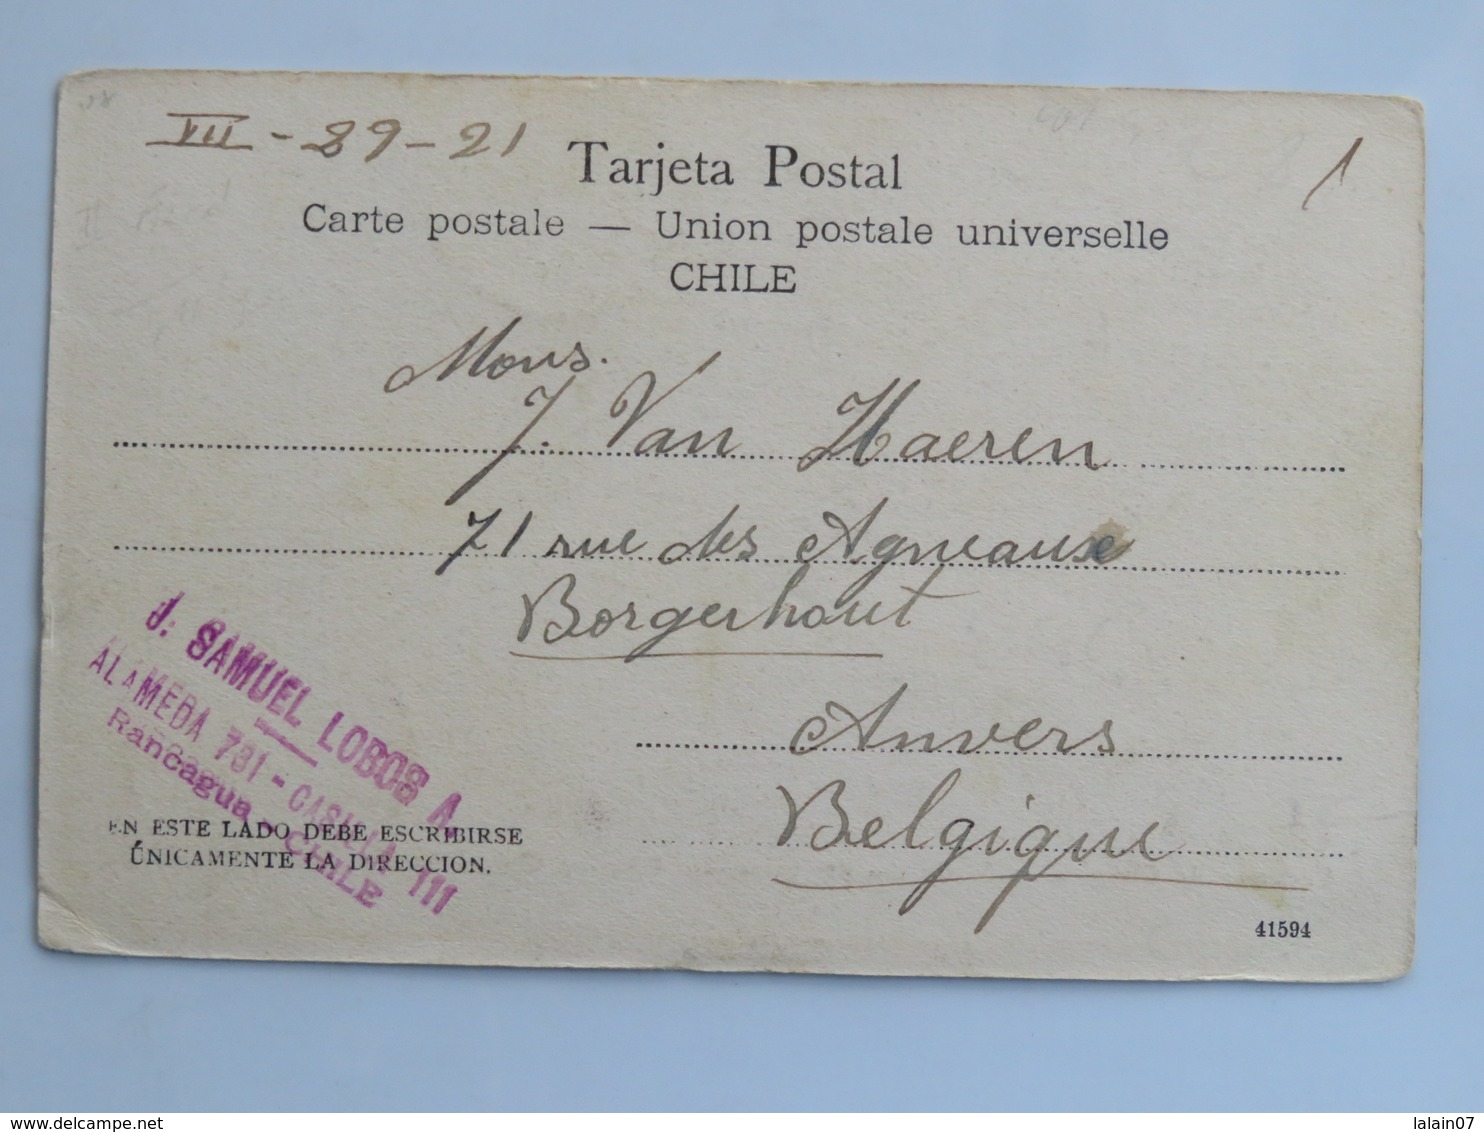 VII - 29 - 21
1
Tarjeta Postal
Carte postale — Union postale universelle
CHILE
Mons.
J. Van Haeren
71 rue des Agneaux
Borgerhout
Anvers
Belgique
J. SAMUEL LOBOS A.
ALAMEDA 731 - CASILLA 111
Rancagua - CHILE
EN ESTE LADO DEBE ESCRIBIRSE
ÚNICAMENTE LA DIRECCION.
41594
delcampe.net
lalain07